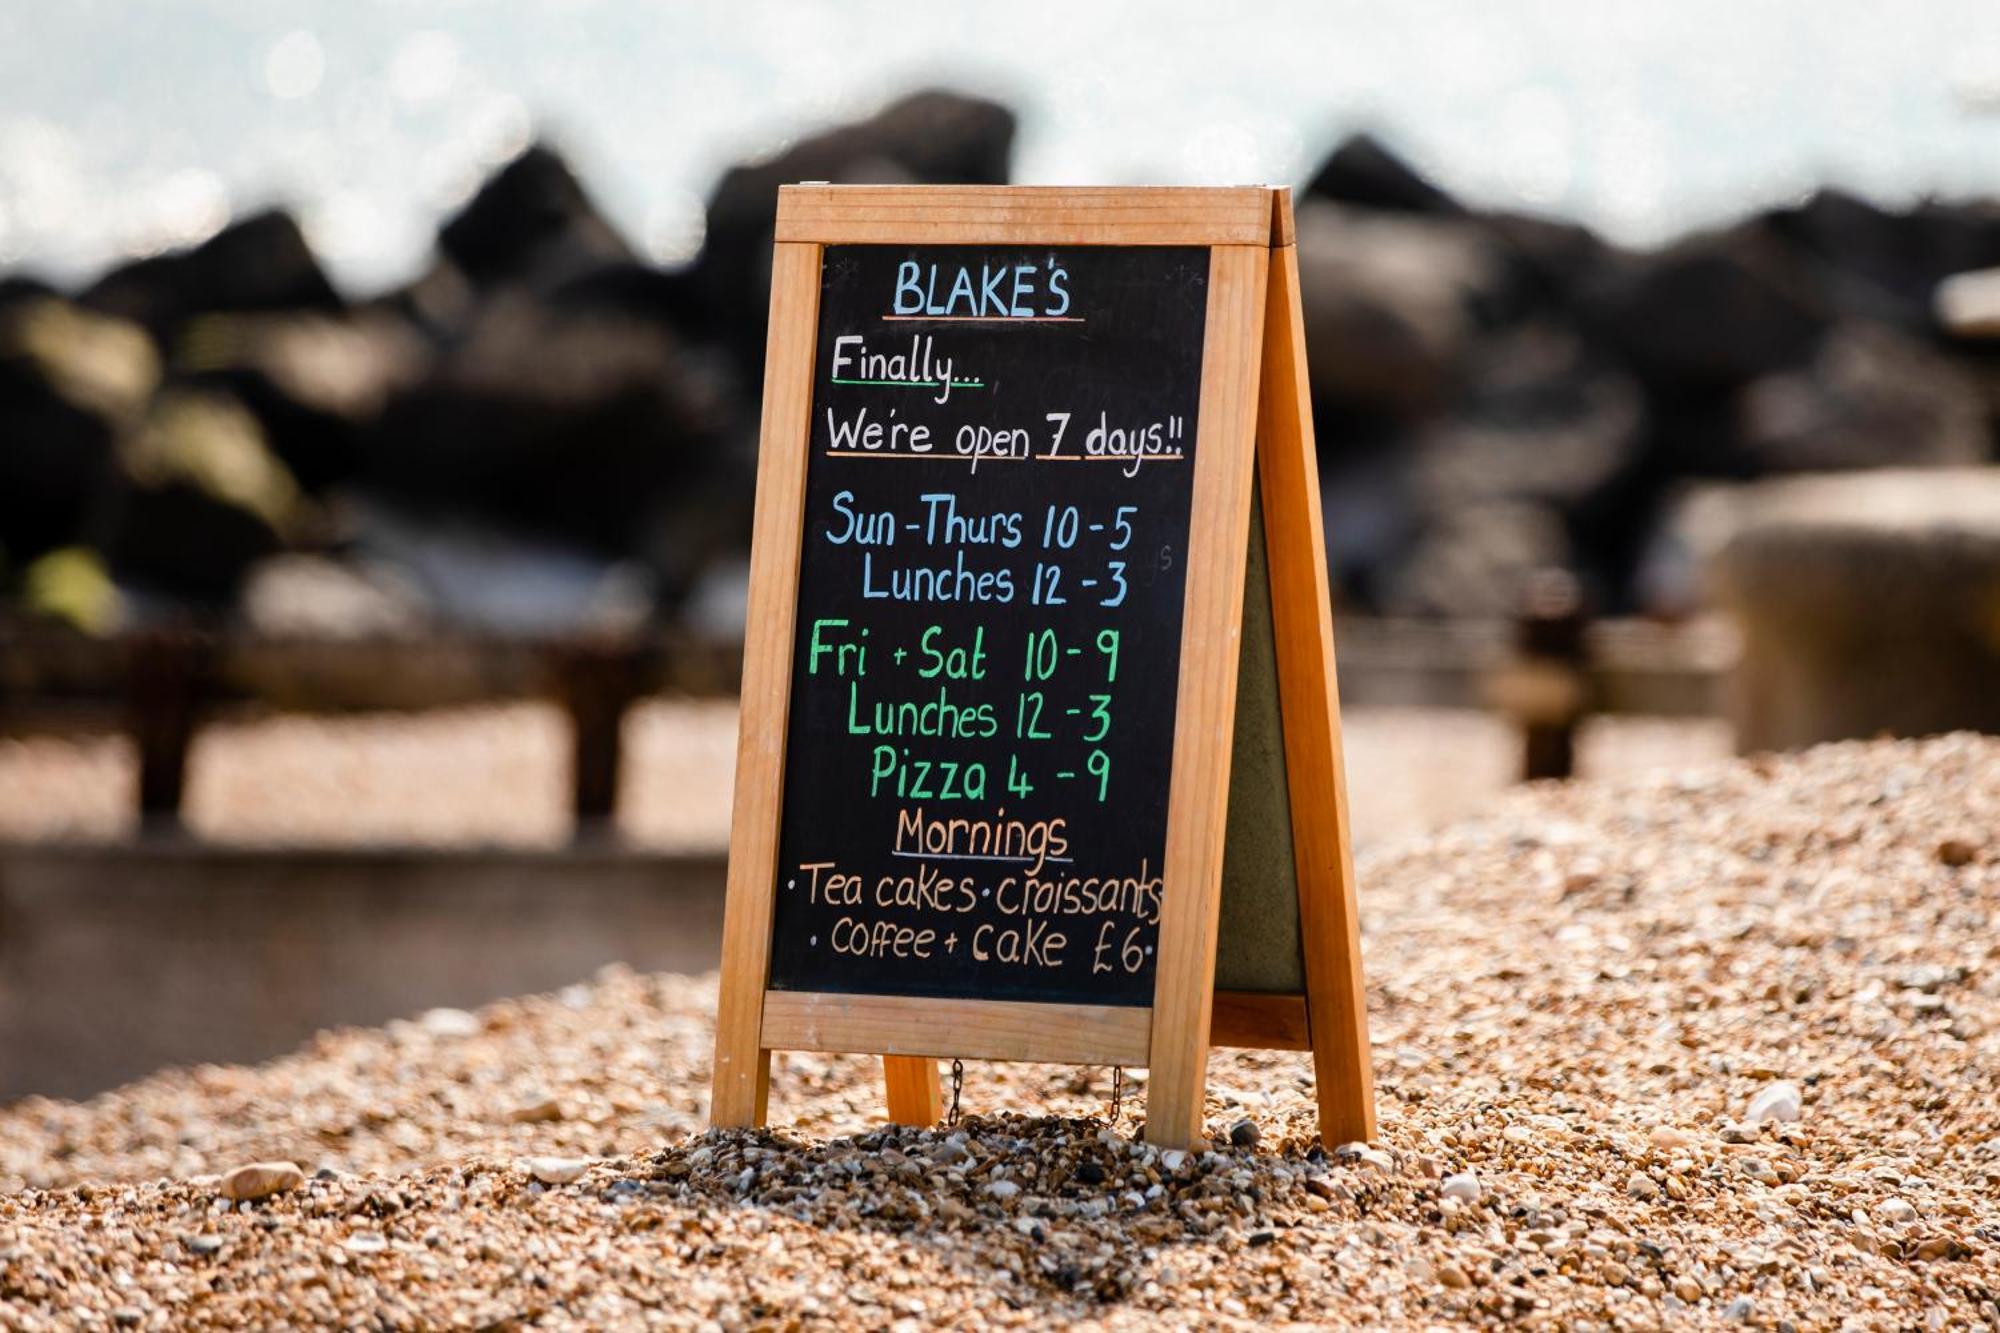 BLAKE'S
Finally...
We're open 7 days!!
Sun - Thurs 10 - 5
Lunches 12 - 3
Fri + Sat 10 - 9
Lunches 12 - 3
Pizza 4 - 9
Mornings
· Tea cakes · croissants
· Coffee + cake £6 ·